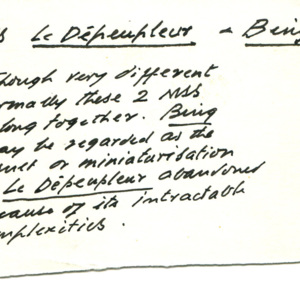 s Le Dépeupleur – Bein
though very different
ormally these 2 MSS
long together. Being
ay be regarded as the
or miniaturisation
Le Dépeupleur abandoned
cause of its intractable
mplexities.